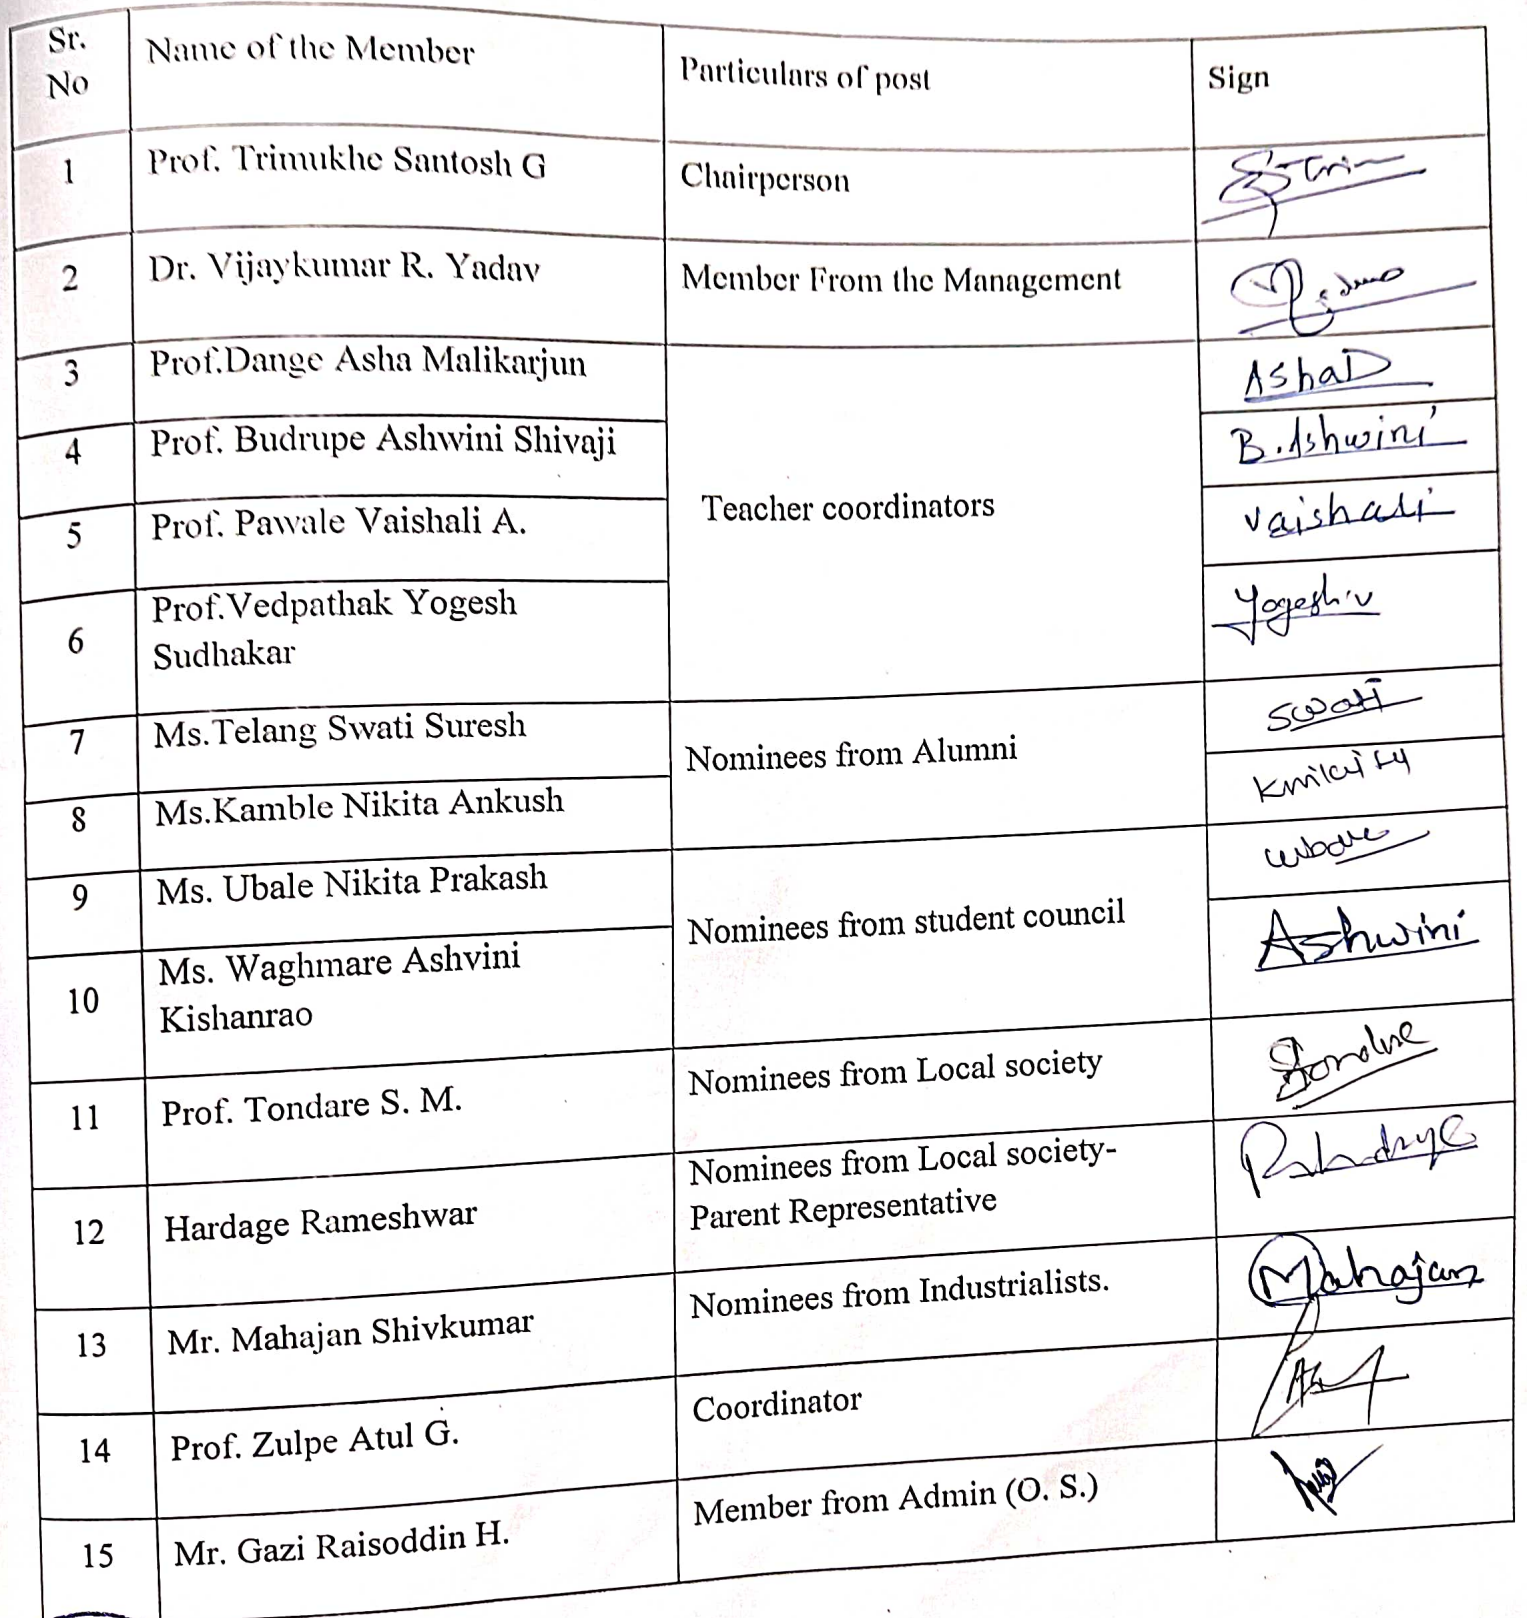 Sr. No
Name of the Member
Particulars of post
Sign
1
Prof. Trimukhe Santosh G
Chairperson
2
Dr. Vijaykumar R. Yadav
Member From the Management
3
Prof.Dange Asha Malikarjun
Teacher coordinators
AshaD
4
Prof. Budrupe Ashwini Shivaji
B.Ashwini
5
Prof. Pawale Vaishali A.
Vaishali
6
Prof.Vedpathak Yogesh
Sudhakar
Yogesh.v
7
Ms.Telang Swati Suresh
Nominees from Alumni
Swati
8
Ms.Kamble Nikita Ankush
9
Ms. Ubale Nikita Prakash
Nominees from student council
10
Ms. Waghmare Ashvini
Kishanrao
Ashwini
11
Prof. Tondare S. M.
Nominees from Local society
12
Hardage Rameshwar
Nominees from Local society-
Parent Representative
13
Mr. Mahajan Shivkumar
Nominees from Industrialists.
Mahajan
14
Prof. Zulpe Atul G.
Coordinator
15
Mr. Gazi Raisoddin H.
Member from Admin (O. S.)